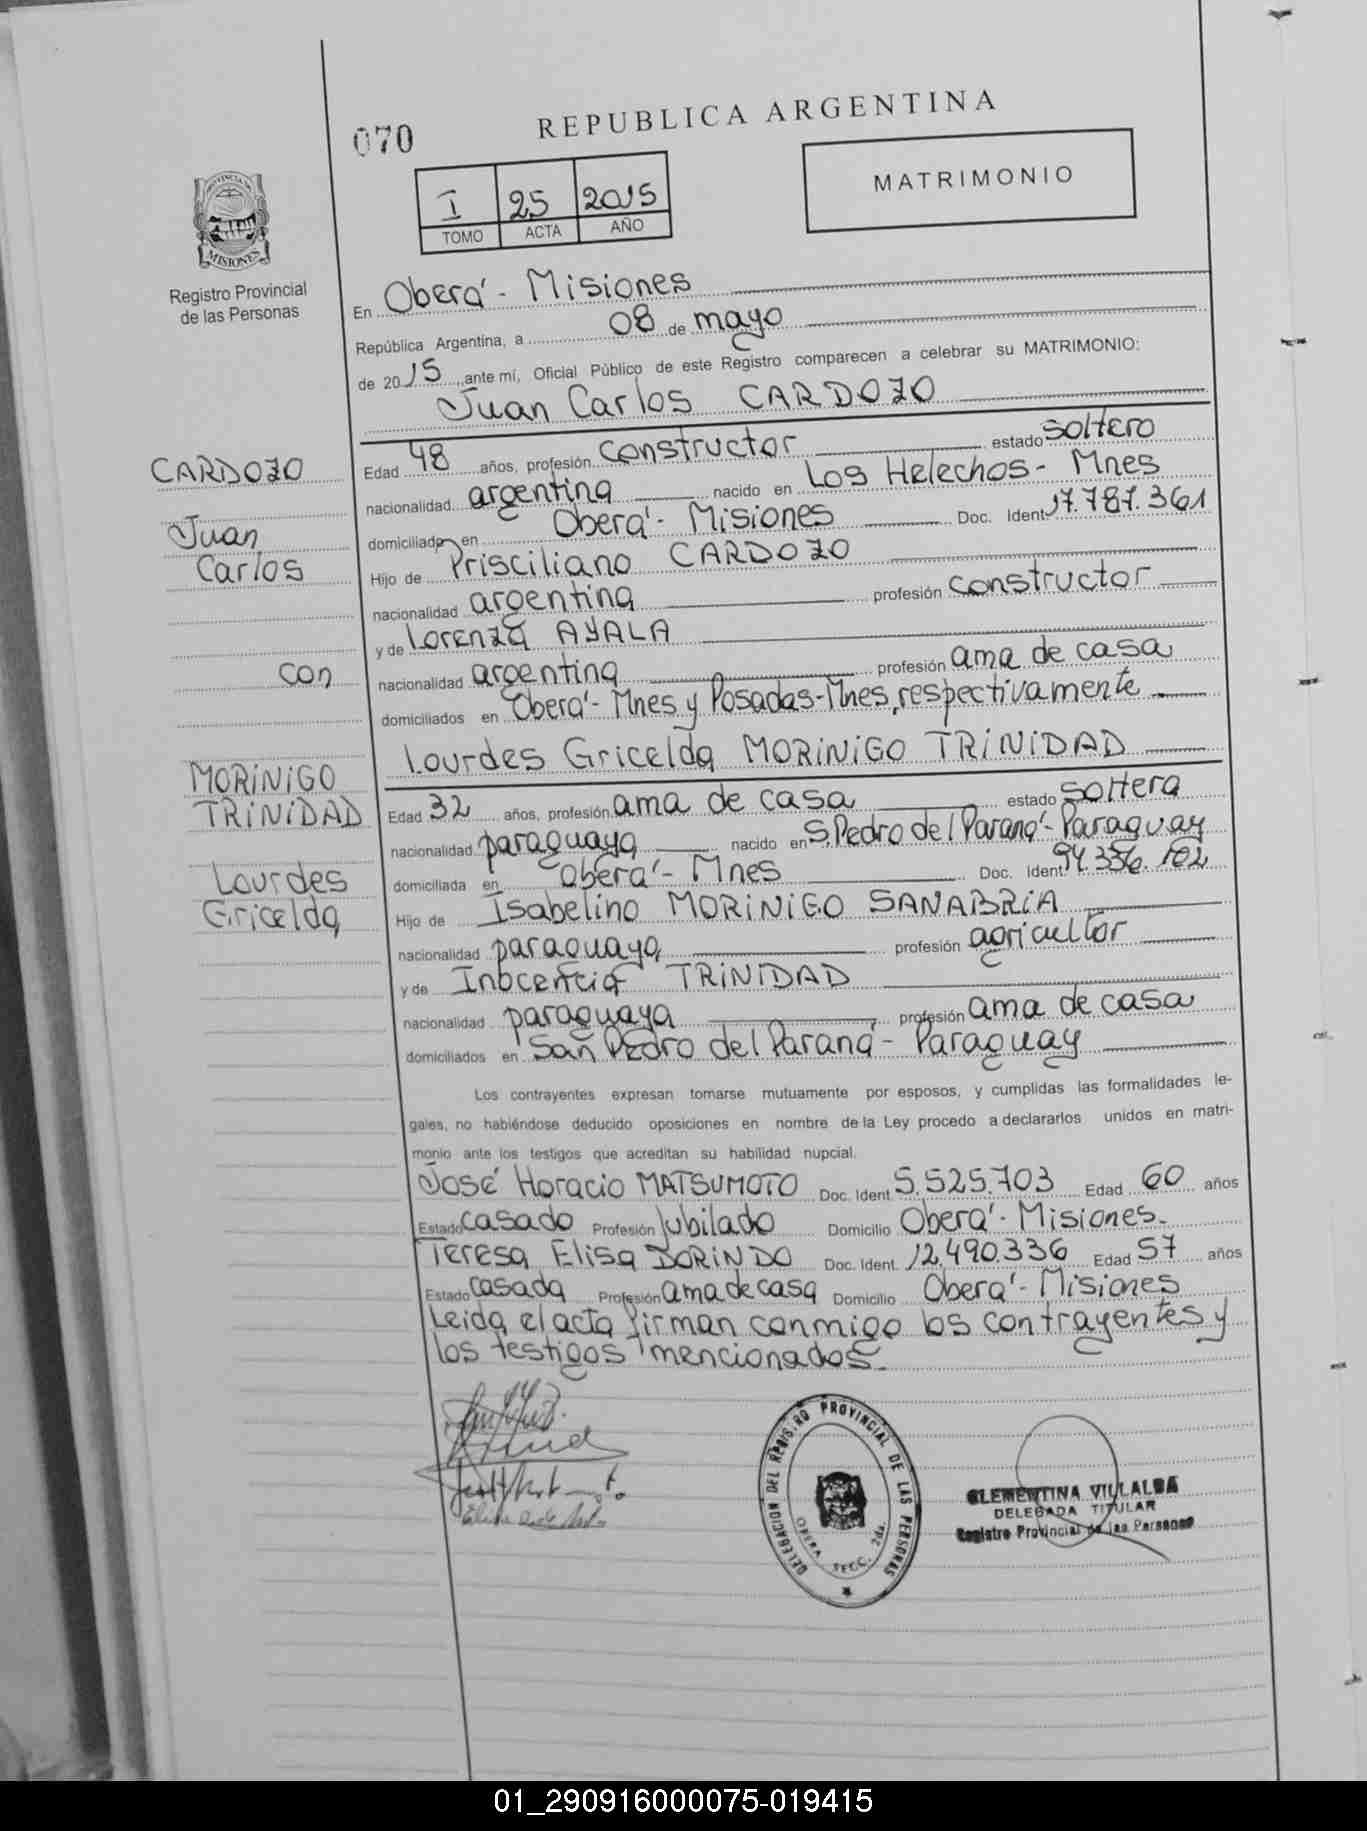 REPUBLICA ARGENTINA
070
MATRIMONIO
I 25 2015
TOMO ACTA AÑO
PROVINCIA DE
MISIONES
Registro Provincial
de las Personas
En Oberá - Misiones
República Argentina, a 08 de mayo
de 2015, ante mí, Oficial Público de este Registro comparecen a celebrar su MATRIMONIO:
Juan Carlos CARDOZO
CARDOZO
Juan
Carlos
con
MORiNiGO
TRiNiDAD
Lourdes
Gricelda
Edad 48 años, profesión constructor estado soltero
nacionalidad argentina nacido en Los Helechos - Mnes
domiciliado en Oberá - Misiones Doc. Ident 17.787.361
Hijo de Prisciliano CARDOZO
nacionalidad argentina profesión constructor
y de Lorenza AYALA
nacionalidad argentina profesión ama de casa
domiciliados en Oberá - Mnes y Posadas-Mnes, respectivamente
Lourdes Gricelda MORiNiGO TRiNiDAD
Edad 32 años, profesión ama de casa estado soltera
nacionalidad paraguaya nacido en S. Pedro del Paraná - Paraguay
domiciliada en Oberá - Mnes Doc. Ident 94.356.102
Hijo de Isabelino MORiNiGO SANABRiA
nacionalidad paraguaya profesión agricultor
y de Inocencia TRiNiDAD
nacionalidad paraguaya profesión ama de casa
domiciliados en San Pedro del Paraná - Paraguay
Los contrayentes expresan tomarse mutuamente por esposos, y cumplidas las formalidades le-
gales, no habiéndose deducido oposiciones en nombre de la Ley procedo a declararlos unidos en matri-
monio ante los testigos que acreditan su habilidad nupcial.
José Horacio MATSUMOTO Doc. Ident 5.525.703 Edad 60 años
Estado casado Profesión Jubilado Domicilio Oberá - Misiones.
Teresa Elisa DORiNDO Doc. Ident. 12.490.336 Edad 57 años
Estado casada Profesión ama de casa Domicilio Oberá - Misiones
Leída el acta firman conmigo los contrayentes y
los testigos mencionados.
DELEGACION DEL REGISTRO PROVINCIAL DE LAS PERSONAS
OBERA SECC. 2da.
CLEMENTINA VILLALBA
DELEGADA TITULAR
Registro Provincial de las Personas
01_290916000075-019415